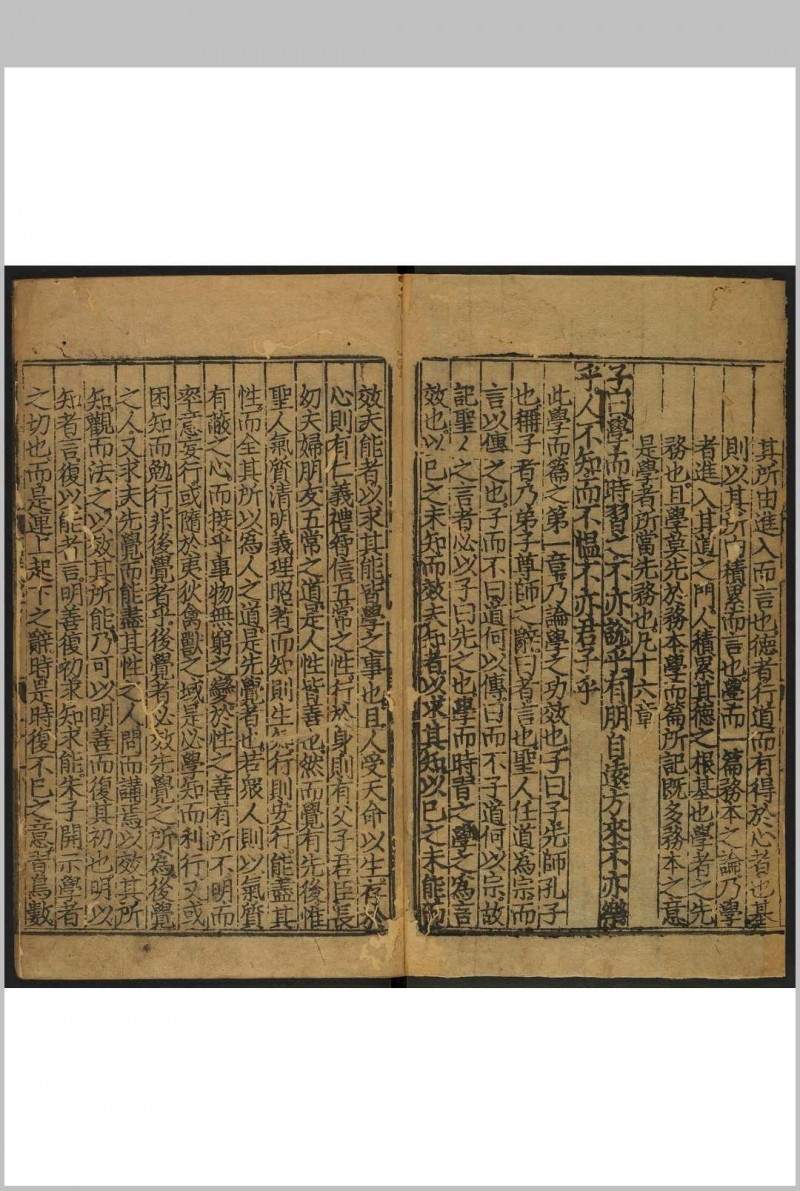 其所由進入而言也德者行道而有得於心者也基
則以其所由積累而言也學而一篇務本之論乃學
者進入其道之門人積累其德之根基也學者之先
務也且學莫先於務本學而篇所記既多務本之意
是學者所當先務也凡十六章
子曰學而時習之不亦說乎有朋自遠方來不亦樂
乎人不知而不愠不亦君子乎
此學而篇之第一章乃論學之功效也子曰子先師孔子
也稱子者乃弟子尊師之辭曰者言也聖人任道為宗而
言以傳之也子而不曰道何以傳曰而不子道何以宗故
記聖人之言者必以子曰先之也學而時習之學之為言
效也以已之未知而效夫知者以求其知以已之未能而
效夫能者以求其能皆學之事也且人受天命以生存於
心則有仁義禮智信五常之性行於身則有父子君臣長
幼夫婦朋友五常之道是人性皆善也然而覺有先後惟
聖人氣質清明義理昭著而知則生知行則安行能盡其
性而全其所以為人之道是先覺者也若眾人則以氣質
有蔽之心而接乎事物無窮之變於性之善有所不明而
率意妄行或隨於夷狄禽獸之域是必學知而利行又或
困知而勉行非後覺者乎後覺者必效先覺之所為後覺
之人又求夫先覺而能盡其性之人問而講焉以效其所
知觀而法之以效其所能乃可以明善而復其初也明以
知者言復以能者言明善復初求知求能朱子開示學者
之切也而是連上起下之辭時是時復不已之意習鳥數